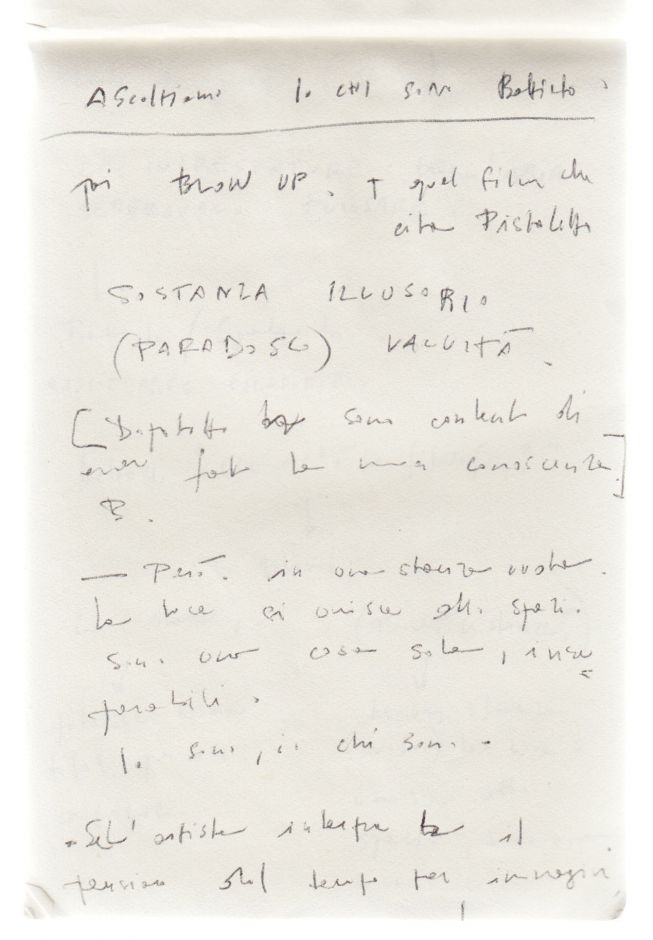 Ascoltiamo Io chi sono Battiato
poi BLOW UP. + quel film che
cita Pistoletto
SOSTANZA ILLUSORIO
(PARADOSSO) VACUITÀ.
[ sono contento di
aver fatto la sua conoscenza.]
B.
— Però. in una stanza vuota.
la luce si unisce allo spazio.
Sono una cosa sola, inse=
parabili.
Io sono, io chi sono.
l'artista interpreta il
pensiero del tempo per immagini